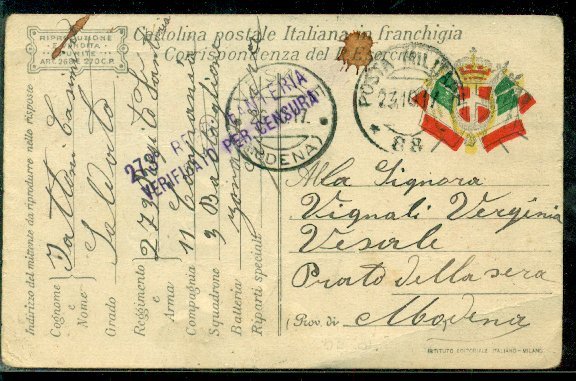 RIPRODUZIONE
E VENDITA
PUNITE
ART. 268 E 270 C.P.
Cartolina postale Italiana in franchigia
Corrispondenza del R. Esercito
POSTA MILITARE
23.10.17
* 88
(MODENA)
273° REGG. FANTERIA
VERIFICATO PER CENSURA
Indirizzo del mittente da riprodurre nella risposta
Cognome
e
Nome
Grado
Soldato
Reggimento 273
e
Arma
Compagnia 11 Compania
Squadrone 3 Bataglione
Batteria zona
Riparti speciali
Alla Signora
Vignali Verginia
Vesale
Prato della sera
(Prov. di Modena
ISTITUTO EDITORIALE ITALIANO - MILANO